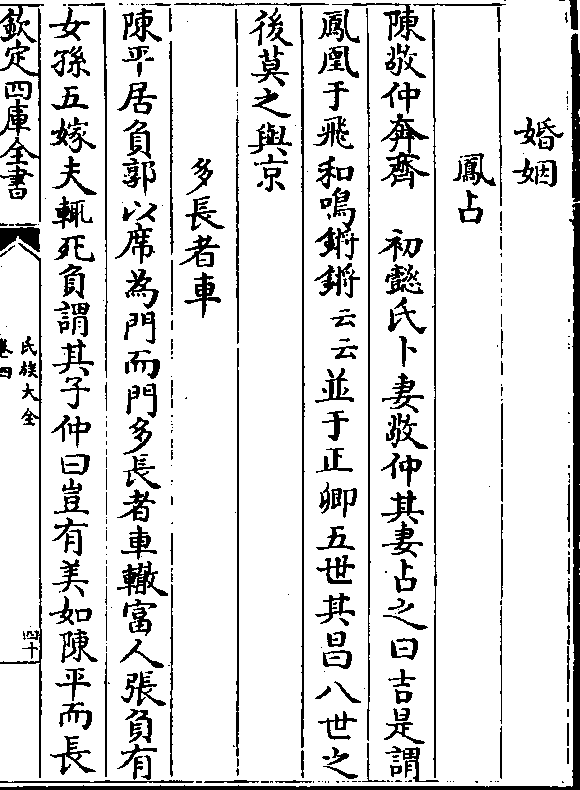 婚姻
鳳占
陳敬仲奔齊　初懿氏卜妻敬仲其妻占之曰吉是謂
鳳凰于飛和鳴鏘鏘云云並于正卿五世其昌八世之
後莫之與京
多長者車
陳平居負郭以席為門而門多長者車轍富人張負有
女孫五嫁夫輒死負謂其子仲曰豈有美如陳平而長
欽定四庫全書
氏族大全
卷四
四十